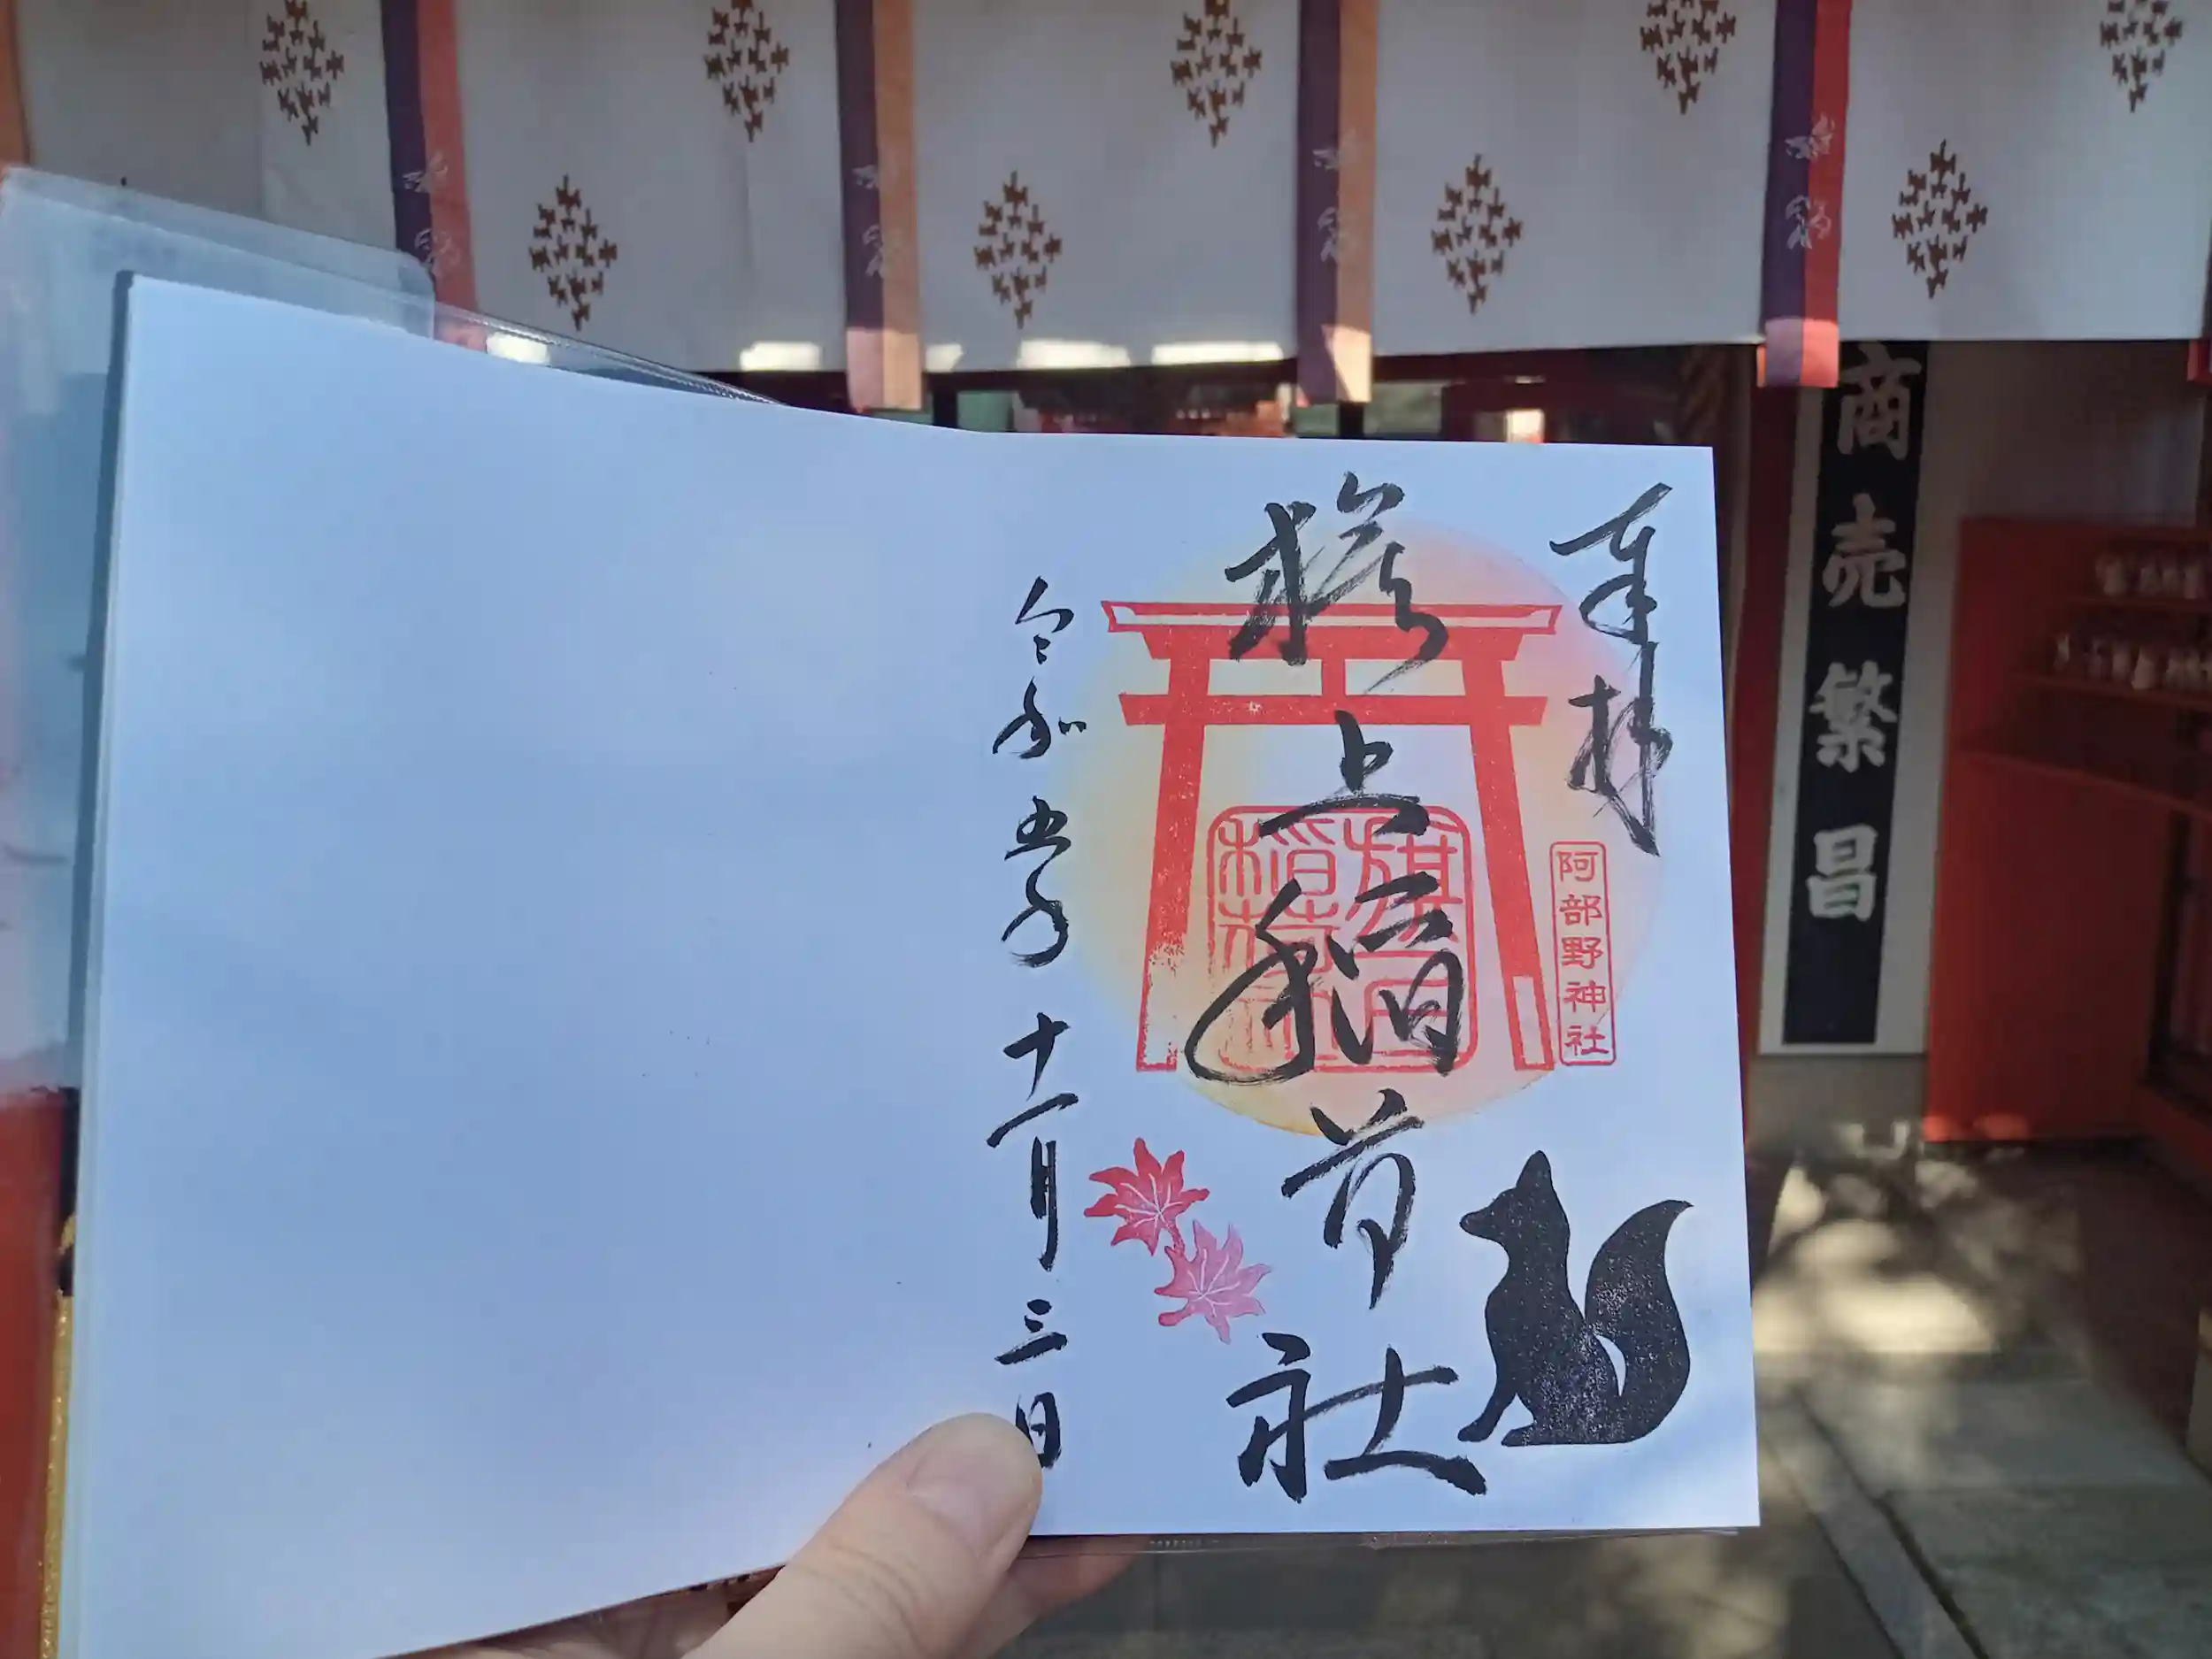 奉拝
阿部野神社
旗上稲荷社
令和五年十一月三日
商売繁昌